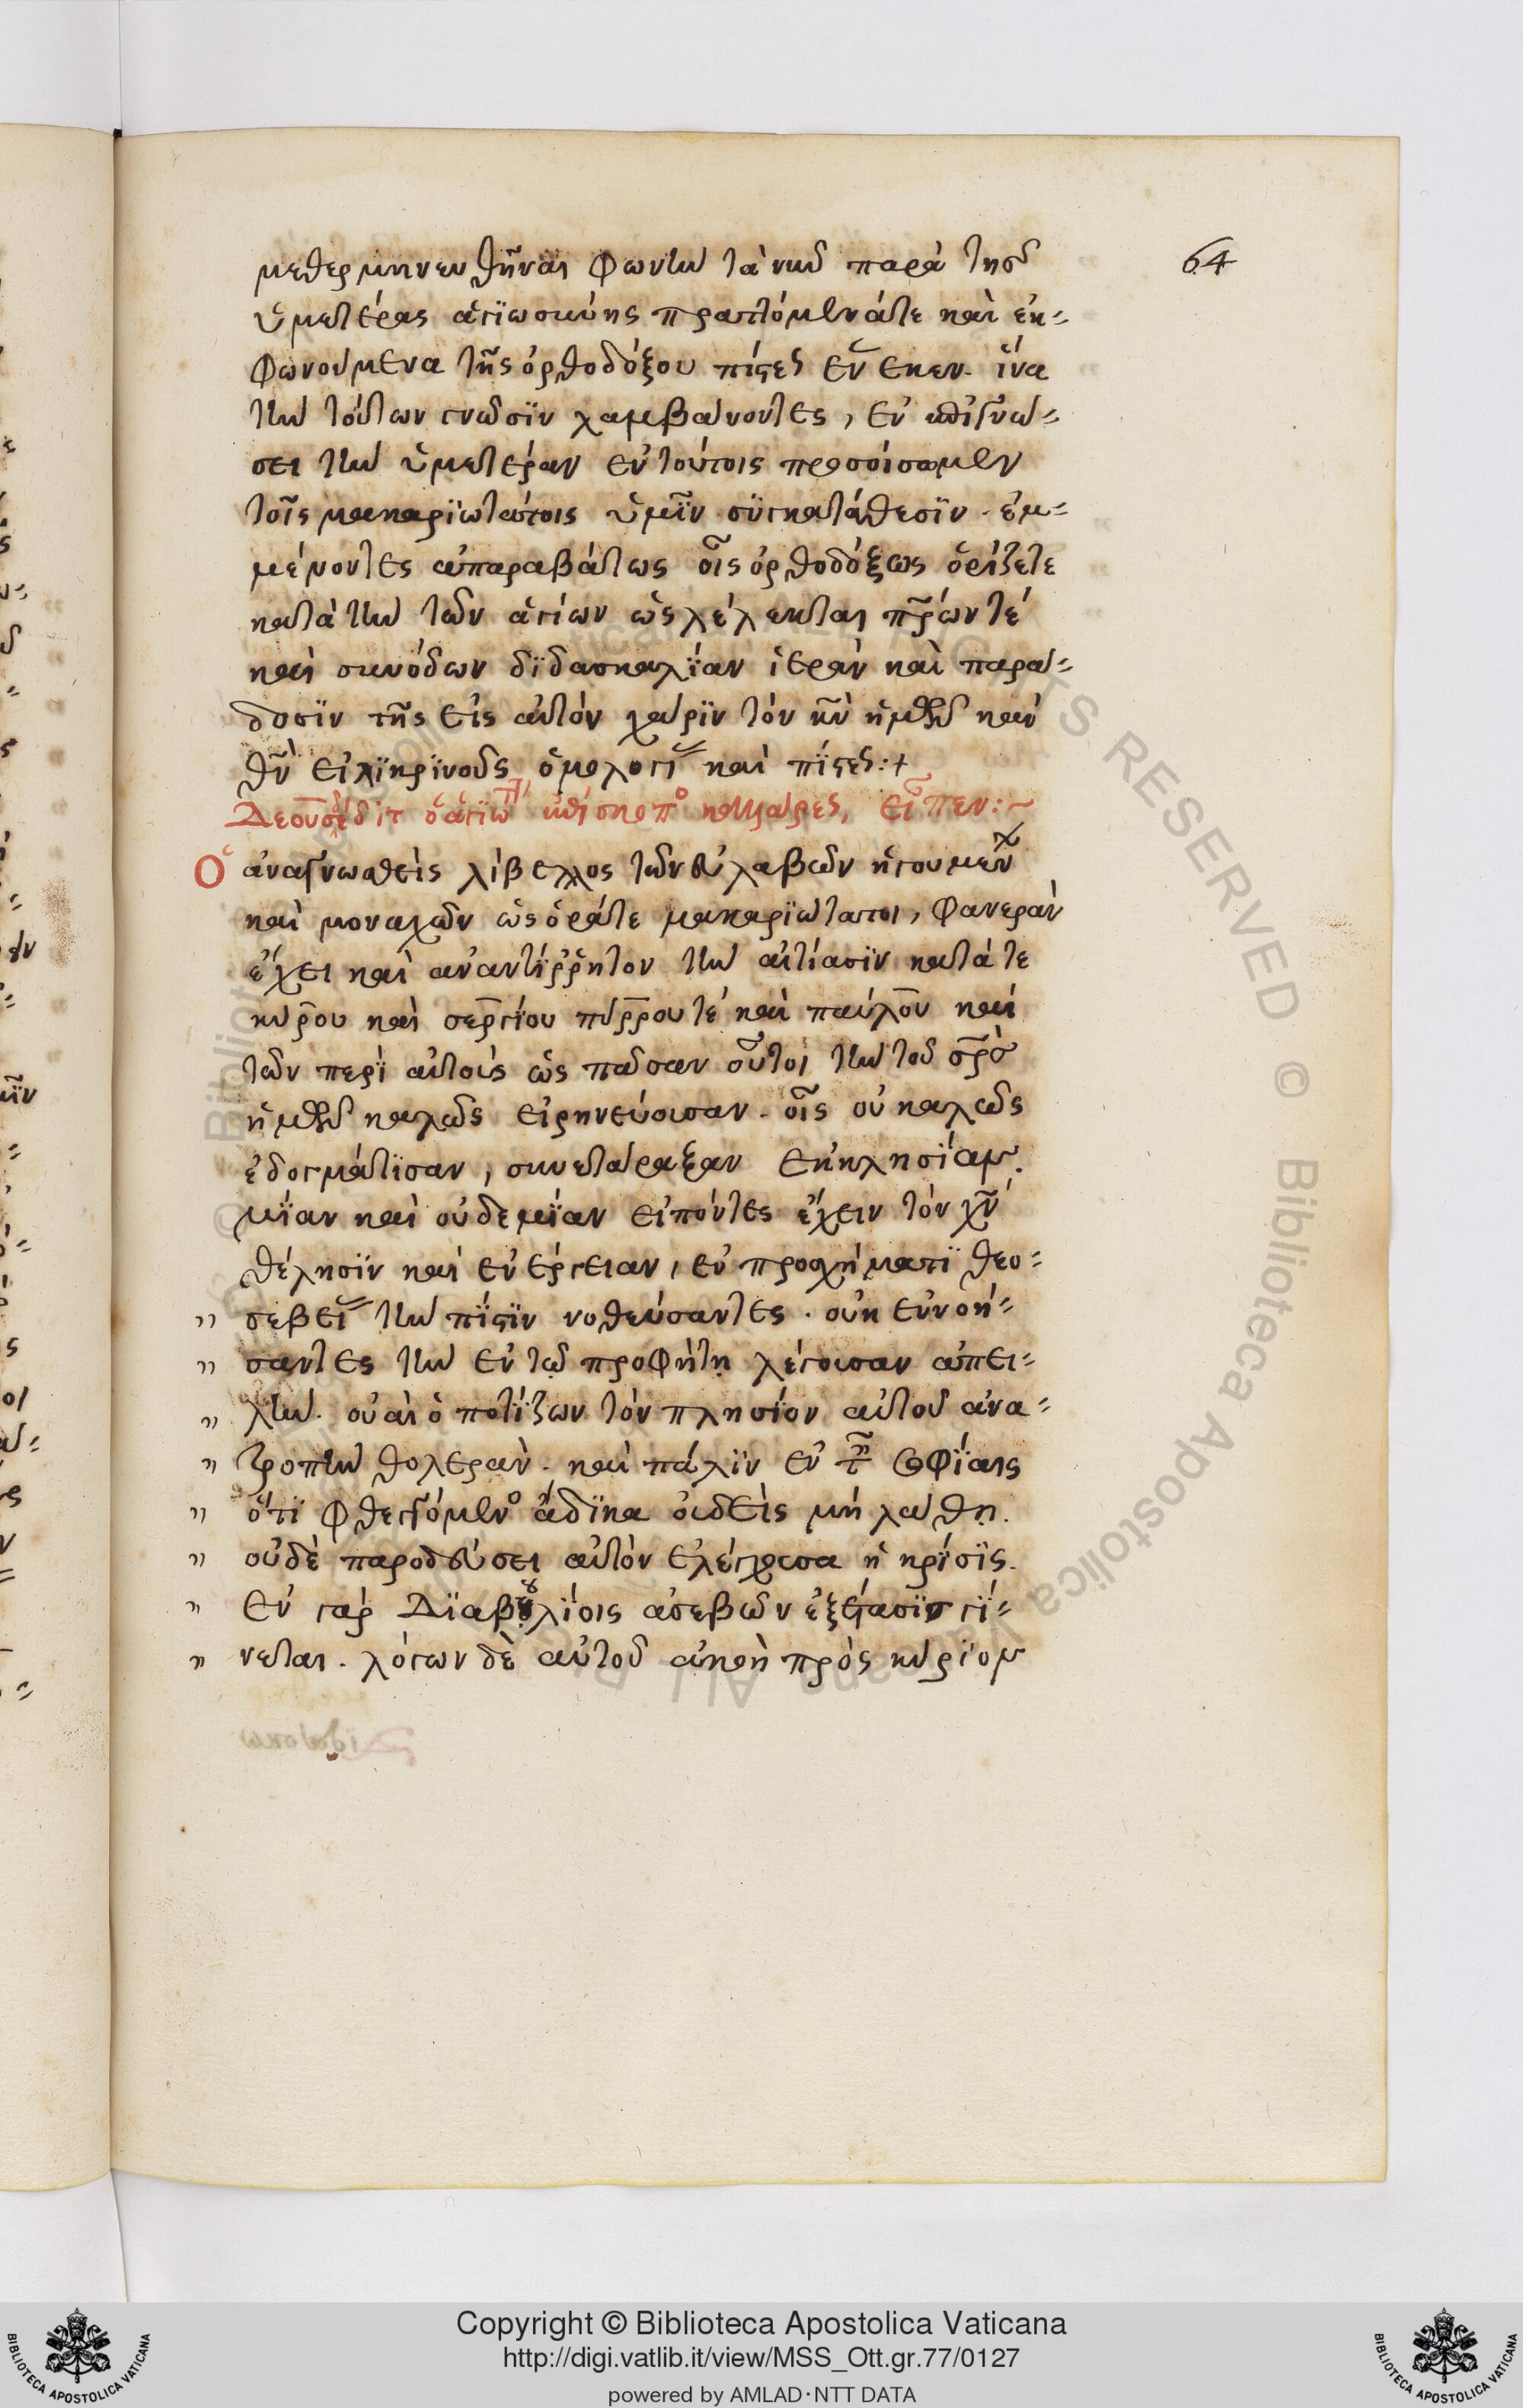 64
μεθερμηνευθῆναι φωνὴν τὰ νῦν παρὰ τῆσ
ὑμετέρας ἁγϊωσύνης πραττόμενάτε καὶ ἐκ-
φωνούμενα τῆς ὀρθοδόξου πίστεως ἕνεκεν. ἵνα
τὴν τούτων γνῶσϊν λαμβάνοντες, ἐν ἐπιγνώ-
σει τὴν ὑμετέραν ἐν τούτοις προσοίσωμεν
τοῖς μακαρϊωτάτοις ὑμῖν συγκατάθεσϊν. ἐμ-
μένοντες ἀπαραβάτως οἷς ὀρθοδόξως ὁρίζετε
κατὰ τὴν τῶν ἁγίων ὡς λέλεκται πρ̅ων τέ
καὶ συνόδων δϊδασκαλϊαν ἱερὰν καὶ παρά-
δοσϊν τῆς εἰς αὐτὸν χάρϊν τὸν κν̅ ἡμῶν καὶ
θν̅ εἰλϊκρϊνοῦς ὁμολογί καὶ πίστεως:+
Δεουσδέδιτ ὁ ἁγϊώτ ἐπίσκοπο καλάρεως, εἶπεν:~
Ὁ ἀναγνωσθεὶς λίβελλος τῶν εὐλαβῶν ἡγουμέν
καὶ μοναχῶν ὡς ὁρᾶτε μακαρϊώτατοι, φανερὰν
ἔχει καὶ ἀναντίρρητον τὴν αἰτίασϊν κατάτε
κύρου καὶ σεργϊου πύρρου τέ καὶ παύλου καὶ
τῶν περὶ αὐτοὺς ὡς πᾶσαν οὗτοι τὴν τοῦ σρ̅σ
ἡμῶν καλῶς εἰρηνεύουσαν. οἷς οὐ καλῶς
ἐδογμάτϊσαν, συνετάραξαν ἐκκλησίαν.
μϊαν καὶ οὐδεμϊαν εἰπόντες ἔχειν τὸν χν̅
θέλησϊν καὶ ἐνέργειαν, ἐν προσχήματϊ θεο-
σεβεί τὴν πίστϊν νοθεύσαντες. οὐκ ἐννοή-
σαντες τὴν ἐν τῷ προφήτῃ λέγουσαν ἀπει-
λήν. οὐαὶ ὁ ποτϊζων τὸν πλησϊον αὐτοῦ ἀνα-
τροπὴν θολεράν. καὶ πάλϊν ἐν τ σοφϊαις
ὅτϊ φθεγγόμενο ἄδϊκα οὐδεὶς μὴ λάθῃ.
οὐδὲ παροδεύσει αὐτὸν ἐλέγχουσα ἡ κρϊσϊς.
ἐν γὰρ Δϊαβουλίοις ἀσεβῶν ἐξέτασϊσ γϊ-
νεται. λόγων δὲ αὐτοῦ ἀκοὴ πρὸς κύρϊον
Copyright © Biblioteca Apostolica Vaticana
http://digi.vatlib.it/view/MSS_Ott.gr.77/0127
powered by AMLAD·NTT DATA